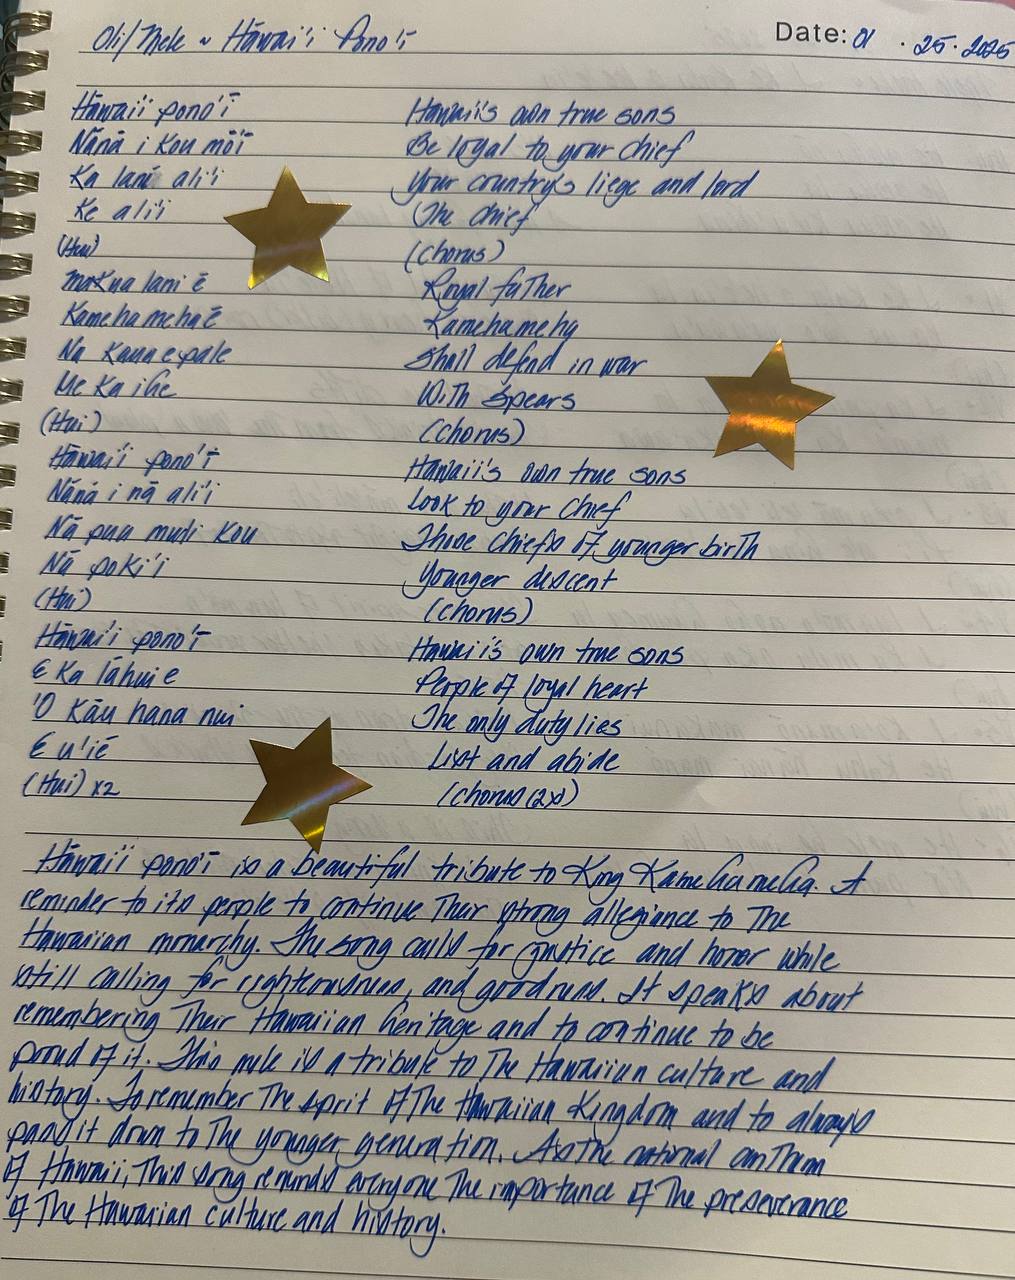 Oli/Mele ~ Hāwai'i Pono'ī
Date: 01 . 25 . 2025
Hāwaii pono'ī Hawaii's own true sons
Nānā i Kou mō'ī Be loyal to your chief
Ka lani ali'i Your country's liege and lord
Ke ali'i The chief
(Hui) (Chorus)
Makua lani ē Royal father
Kamehameha ē Kamehameha
Na Kaua e pale Shall defend in war
Me Ka ihe With spears
(Hui) (Chorus)
Hāwai'i pono'ī Hawaii's own true sons
Nānā i nā ali'i Look to your chief
Nā pua muli Kou Those chiefs of younger birth
Nā poki'i Younger descent
(Hui) (Chorus)
Hāwai'i pono'ī Hawaii's own true sons
E Ka lāhui e People of loyal heart
'O Kāu hana nui The only duty lies
E u'iē List and abide
(Hui) x2 (Chorus (2x))
Hāwai'i pono'ī is a beautiful tribute to King Kamehameha. A
reminder to its people to continue Their strong allegiance to The
Hawaiian monarchy. The song calls for justice and honor while
still calling for righteousness, and goodness. It speaks about
remembering Their Hawaiian heritage and to continue to be
proud of it. This mele is a tribute to The Hawaiian culture and
history. To remember The sprit of The Hawaiian Kingdom and to always
pass it down to The younger generation. As The national anThem
of Hawaii, This song reminds everyone The importance of The preseverance
of The Hawaiian culture and history.